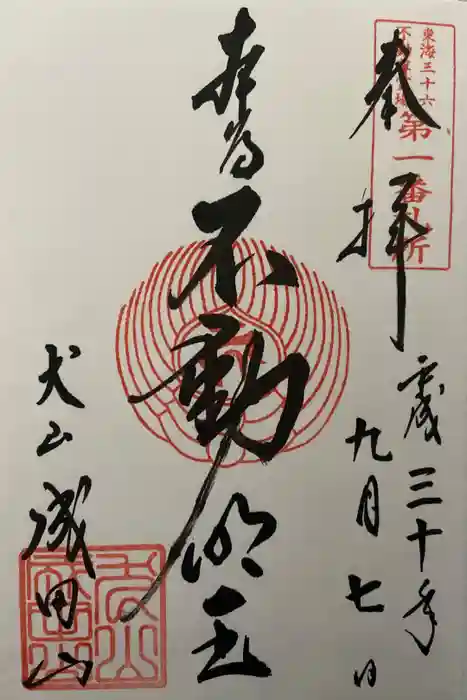 東海三十六
不動尊霊場
第一番札所
奉拝
平成三十年
九月七日
不動明王
犬山
成田山